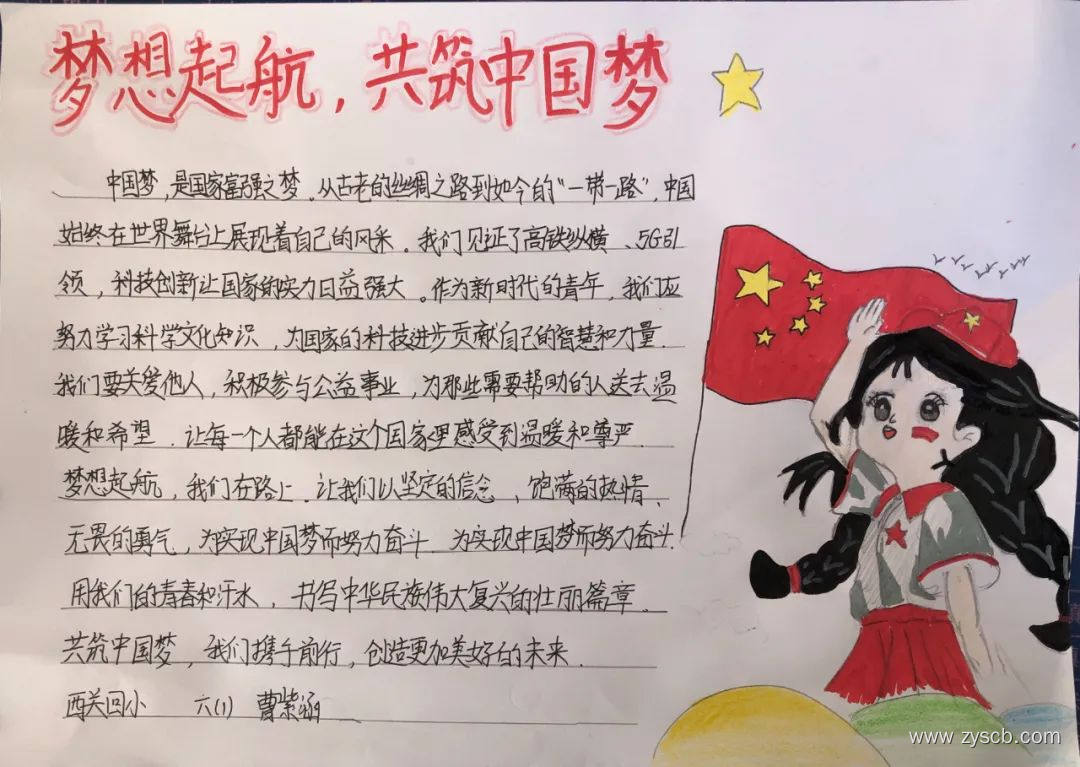 梦想起航，共筑中国梦
中国梦，是国家富强之梦。从古老的丝绸之路到如今的“一带一路”，中国
始终在世界舞台上展现着自己的风采。我们见证了高铁纵横、5G引
领，科技创新让国家的实力日益强大。作为新时代的青年，我们应
努力学习科学文化知识，为国家的科技进步贡献自己的智慧和力量。
我们要关爱他人，积极参与公益事业，为那些需要帮助的人送去温
暖和希望。让每一个人都能在这个国家里感受到温暖和尊严。
梦想起航，我们在路上。让我们以坚定的信念、饱满的热情、
无畏的勇气，为实现中国梦而努力奋斗。为实现中国梦而努力奋斗.
用我们的青春和汗水，书写中华民族伟大复兴的壮丽篇章。
共筑中国梦，我们携手前行，创造更加美好的未来.
西关回小 六(1) 曹紫涵
www.zyscb.com